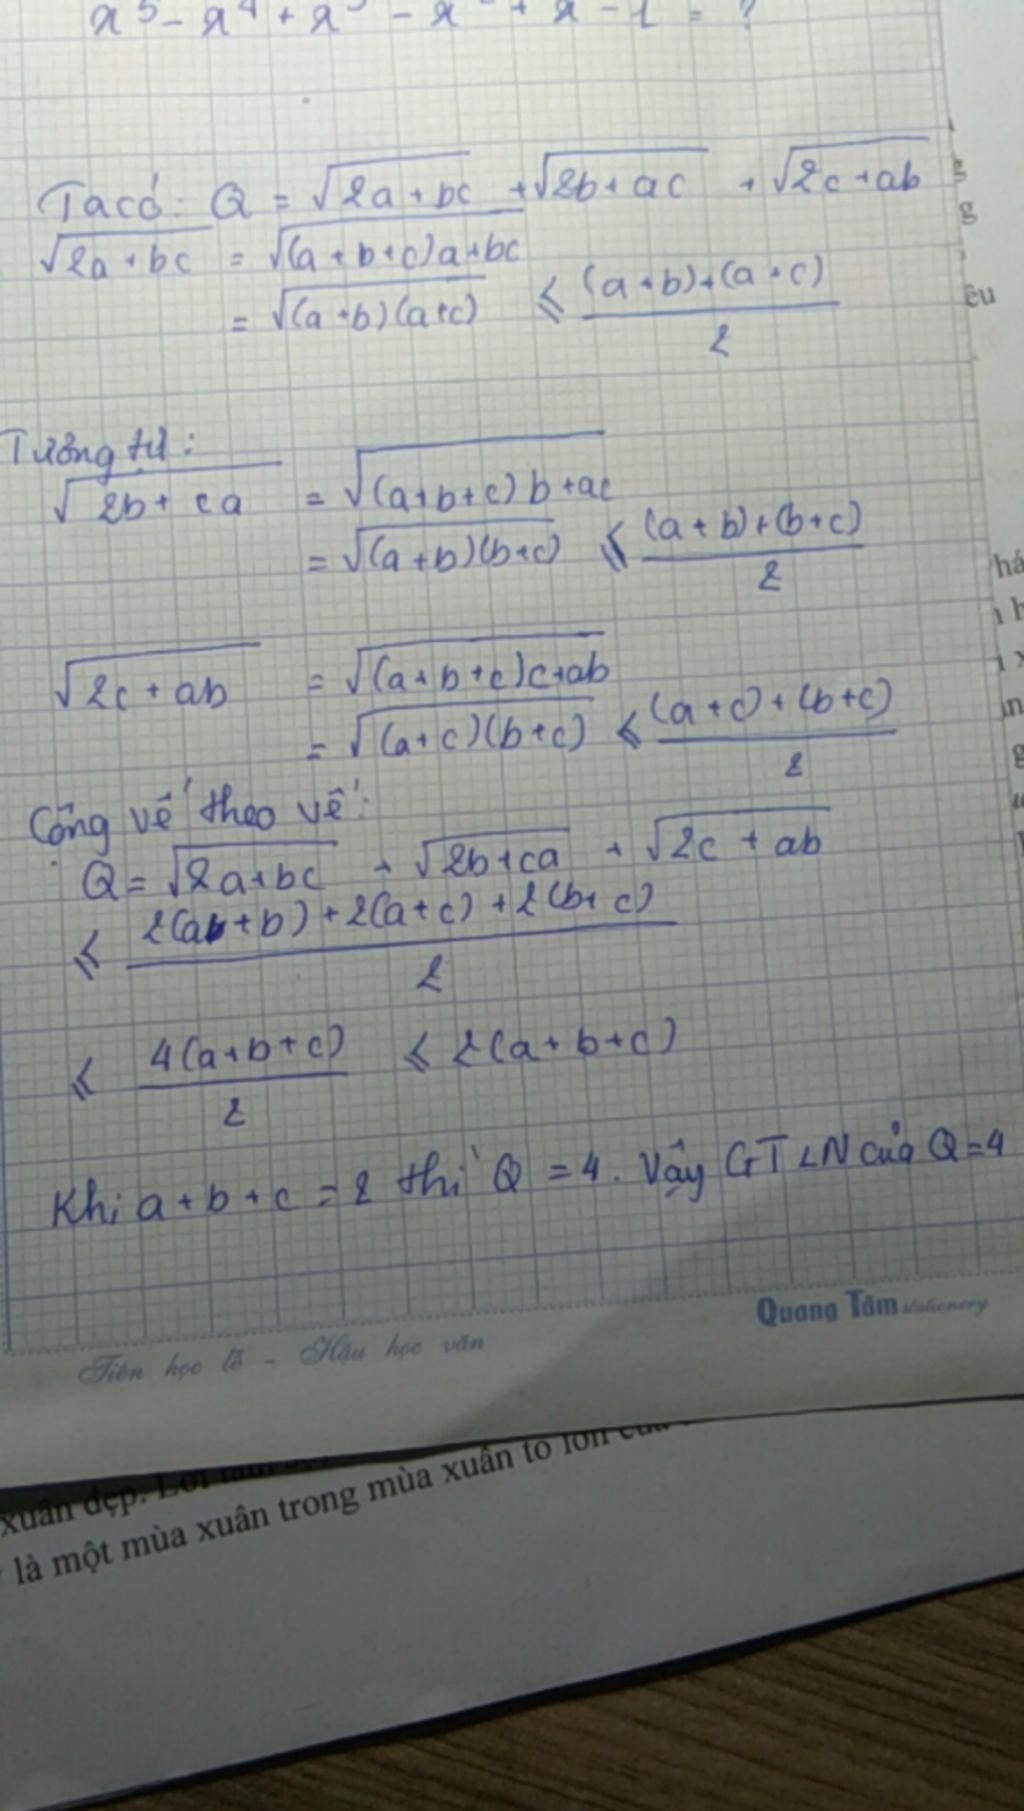 x⁵ - x⁴ + x³ - x² + x - 1 = ?
Ta có: Q = √(2a + bc) + √(2b + ac) + √(2c + ab)
√(2a + bc) = √((a + b + c)a + bc)
= √((a + b)(a + c)) ⩽ ((a + b) + (a + c))/2
Tương tự:
√(2b + ca) = √((a + b + c)b + ac)
= √((a + b)(b + c)) ⩽ ((a + b) + (b + c))/2
√(2c + ab) = √((a + b + c)c + ab)
= √((a + c)(b + c)) ⩽ ((a + c) + (b + c))/2
Cộng vế theo vế:
Q = √(2a + bc) + √(2b + ca) + √(2c + ab)
⩽ (2(a + b) + 2(a + c) + 2(b + c))/2
⩽ 4(a + b + c)/2 ⩽ 2(a + b + c)
Khi a + b + c = 2 thì Q = 4. Vậy GTLN của Q = 4
Quang Tâm stationery
Tiên học lễ - Hậu học văn
xuân đẹp.
là một mùa xuân trong mùa xuân to lớn của
g
êu